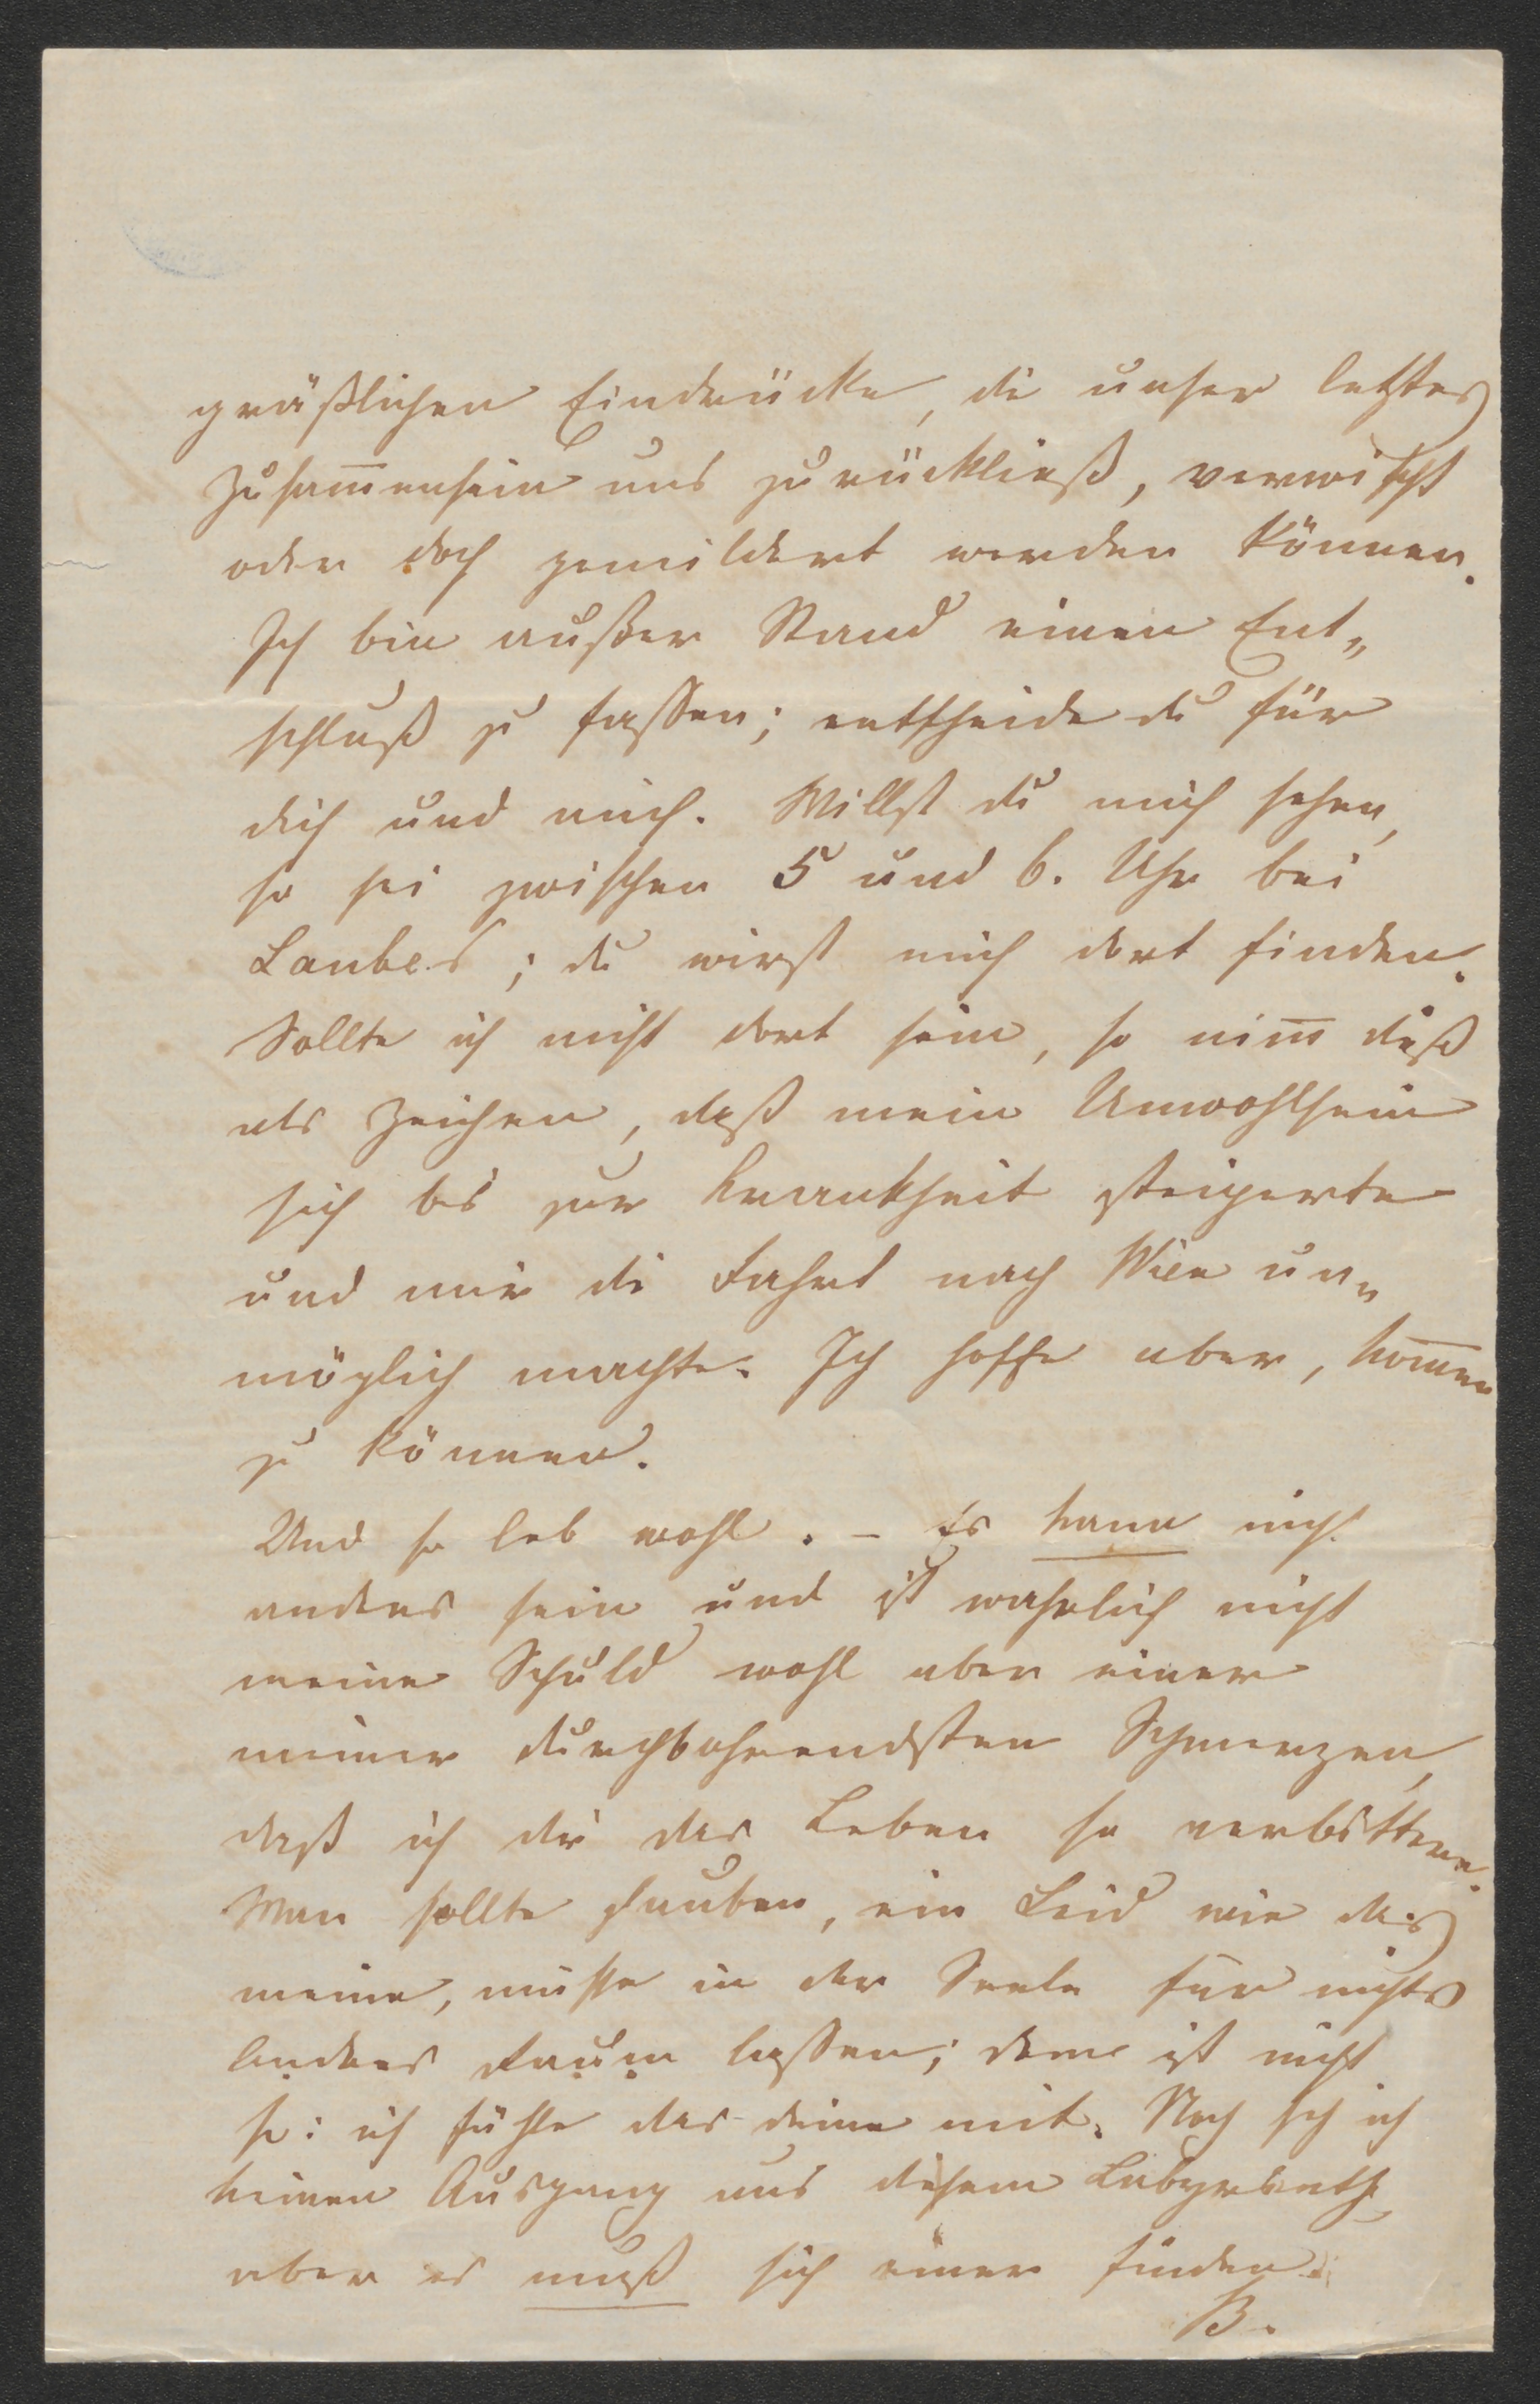 gräßlichen Eindrücke, die unser letztes
Zusam̅ensein uns zurückließ, verwischt
oder doch gemildert werden können.
Ich bin außer Stand einen Ent„
schluß zu fassen; entscheide du für
dich und mich. Willst du mich sehen,
so sei zwischen 5 und 6. Uhr bei
Laubes; du wirst mich dort finden.
Sollte ich nicht dort sein, so nim̅ dieß
als Zeichen, daß mein Unwohlsein
sich bis zur Krankheit steigerte
und mir die Fahrt nach Wien un„
möglich machte. Ich hoffe aber, kom̅en
zu können.
Und so leb wohl. – Es kann nicht
anders sein und ist wahrlich nicht
meine Schuld wohl aber einer
meiner durchbohrendsten Schmerzen,
daß ich dir das Leben so verbittere.
Man sollte glauben, ein Leid wie das
meine, müsse in der Seele für nichts
Anderes Raum lassen; dem ist nicht
so: ich fühle das deine mit. Noch seh ich
keinen Ausgang aus diesem Labyrinth,
aber es muß sich einer finden.
B.